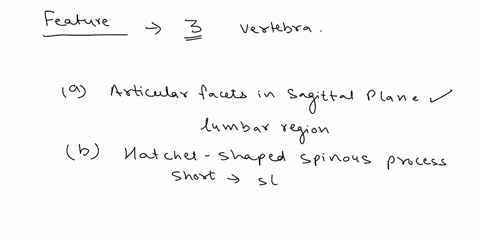 Feature → 3 vertebra.
(a) Articular facets in Sagittal Plane ✓
lumbar region
(b) Hatchet-shaped spinous process
short → sl